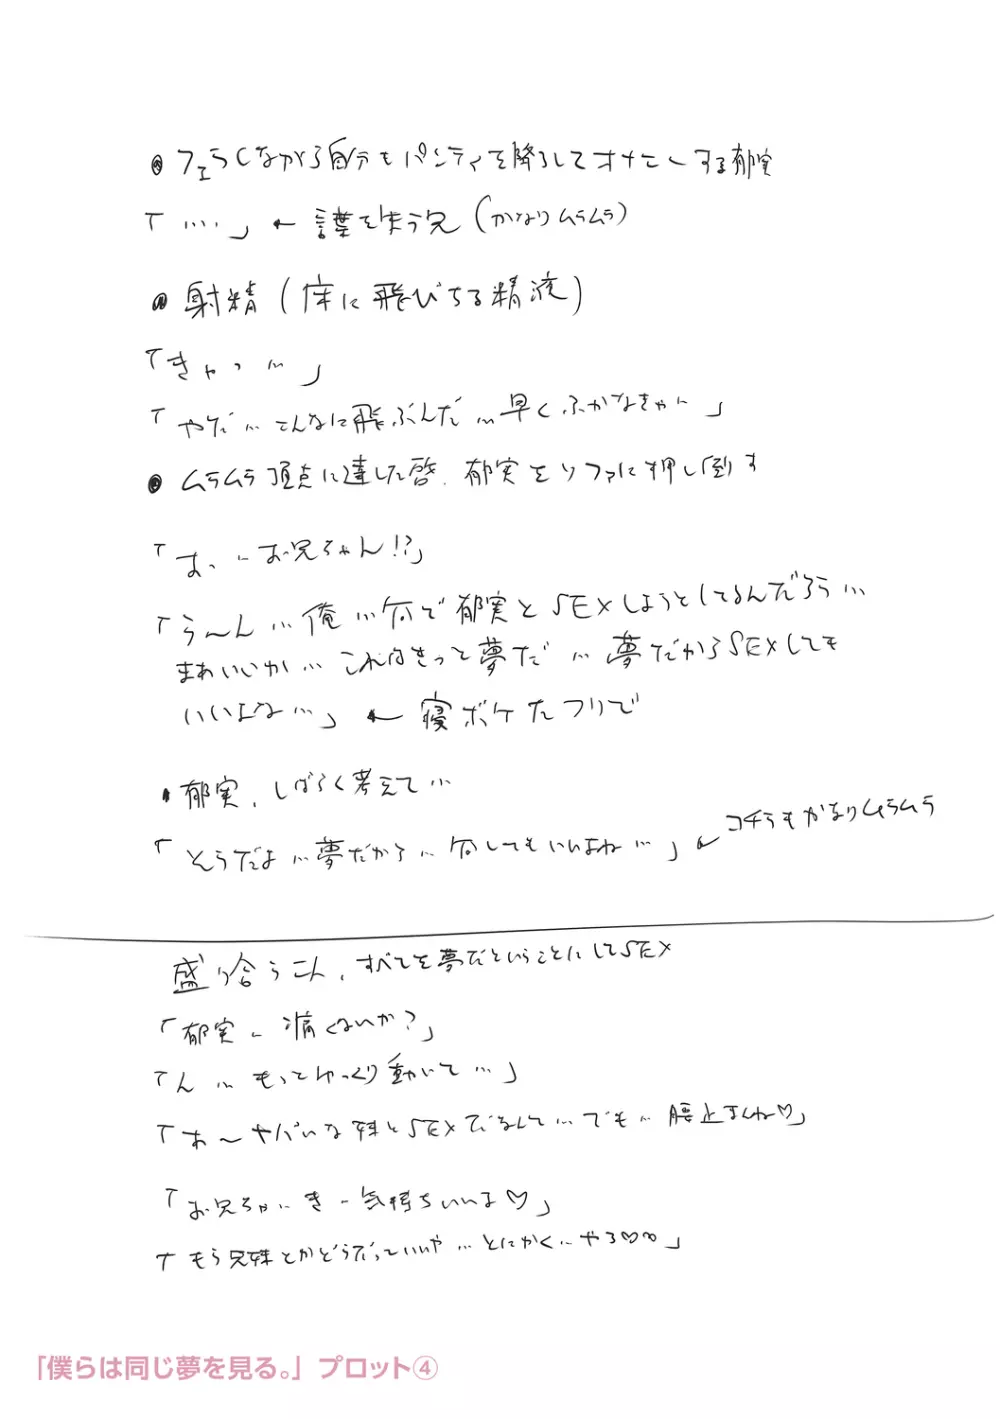 フェラしながら自分もパンティを降ろしてオナニーする郁実
「….」← 言葉を失う兄（かなりムラムラ）
射精（床に飛びちる精液）
「きゃっ…」
「やだ…こんなに飛ぶんだ…早くふかなきゃ…」
ムラムラ頂点に達した啓、郁実をソファに押し倒す
「あっ…お兄ちゃん!?」
「う〜ん…俺…何で郁実とSEXしようとしてるんだろう…
まあいいか…これはきっと夢だ…夢だからSEXしても
いいよな…」← 寝ボケたフリで
郁実、しばらく考えて…
「そうだよ…夢だから…何してもいいよね…」← コチラもかなりムラムラ
盛り合う二人、すべてを夢だということにしてSEX
「郁実…痛くないか？」
「ん…もっとゆっくり動いて…」
「あ〜ヤバいな妹とSEXだなんて…でも…腰止まんね♡」
「お兄ちゃ… き…気持ちいいよ♡」
「もう兄妹とかどうだっていいや…とにかく…やる♡♡」
「僕らは同じ夢を見る。」プロット④